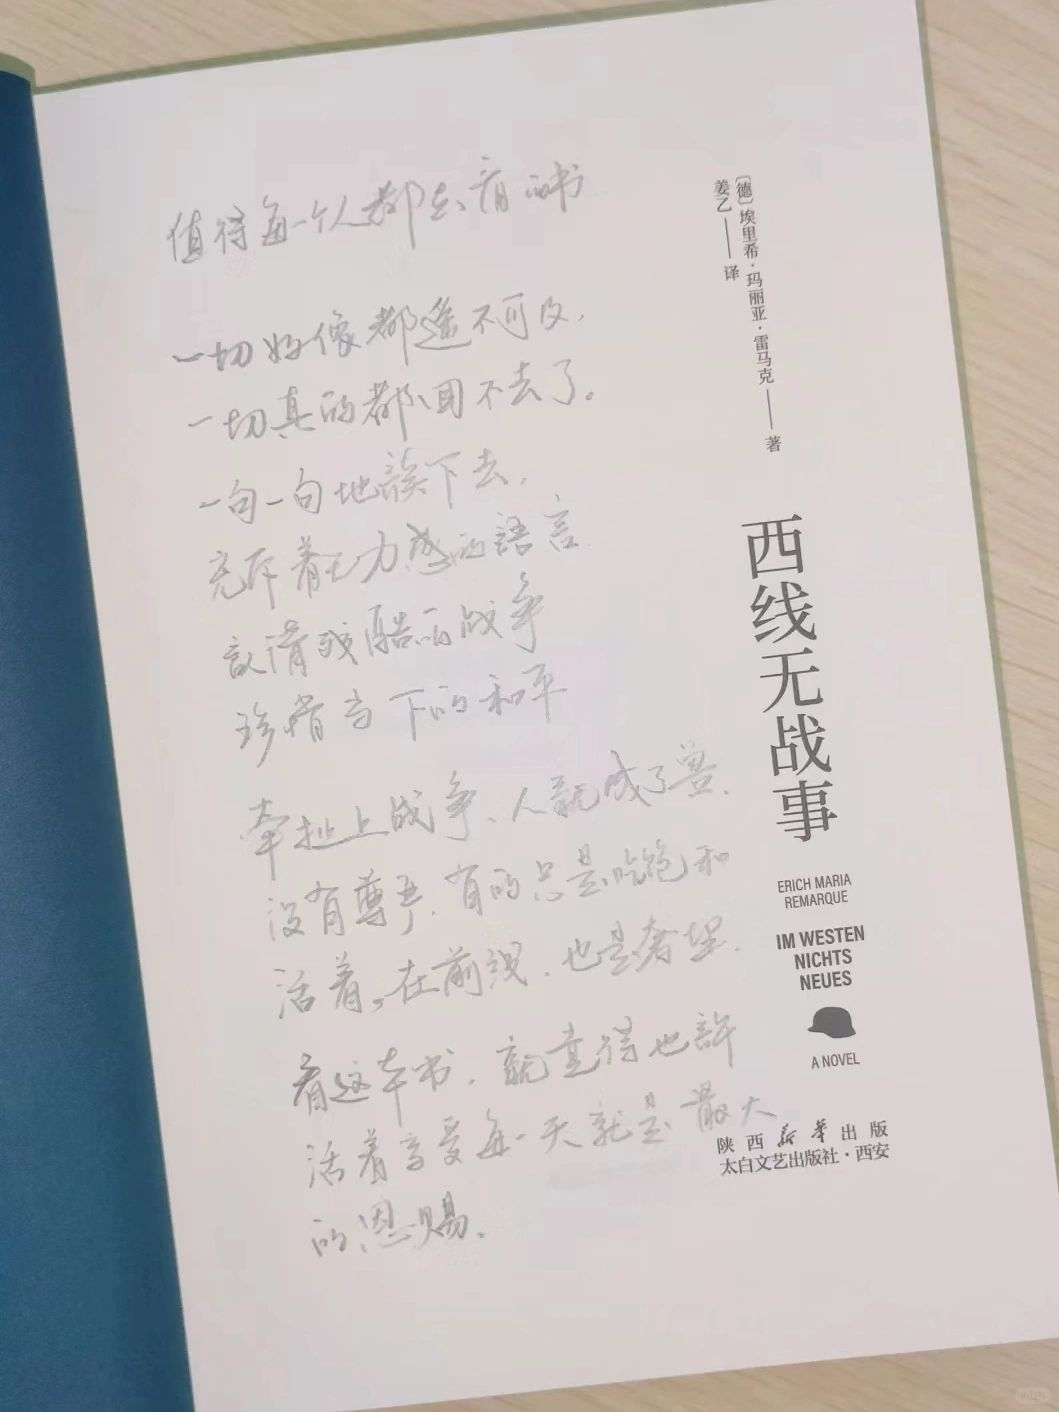 值得每一个人都去看的书
一切好像都遥不可及,
一切真的都回不去了。
一句一句地读下去,
充斥着无力感的語言
認清残酷的战争
珍惜当下的和平
牵扯上战争、人就成了兽.
没有尊严.有的只是吃饱和
活着。在前线.也是奢望.
看这本书.就觉得也許
活着享受每一天就是最大
的恩赐.
〔德〕埃里希·玛丽亚·雷马克——著
姜乙——译
西线无战事
ERICH MARIA
REMARQUE
IM WESTEN
NICHTS
NEUES
A NOVEL
陕西新华出版
太白文艺出版社·西安